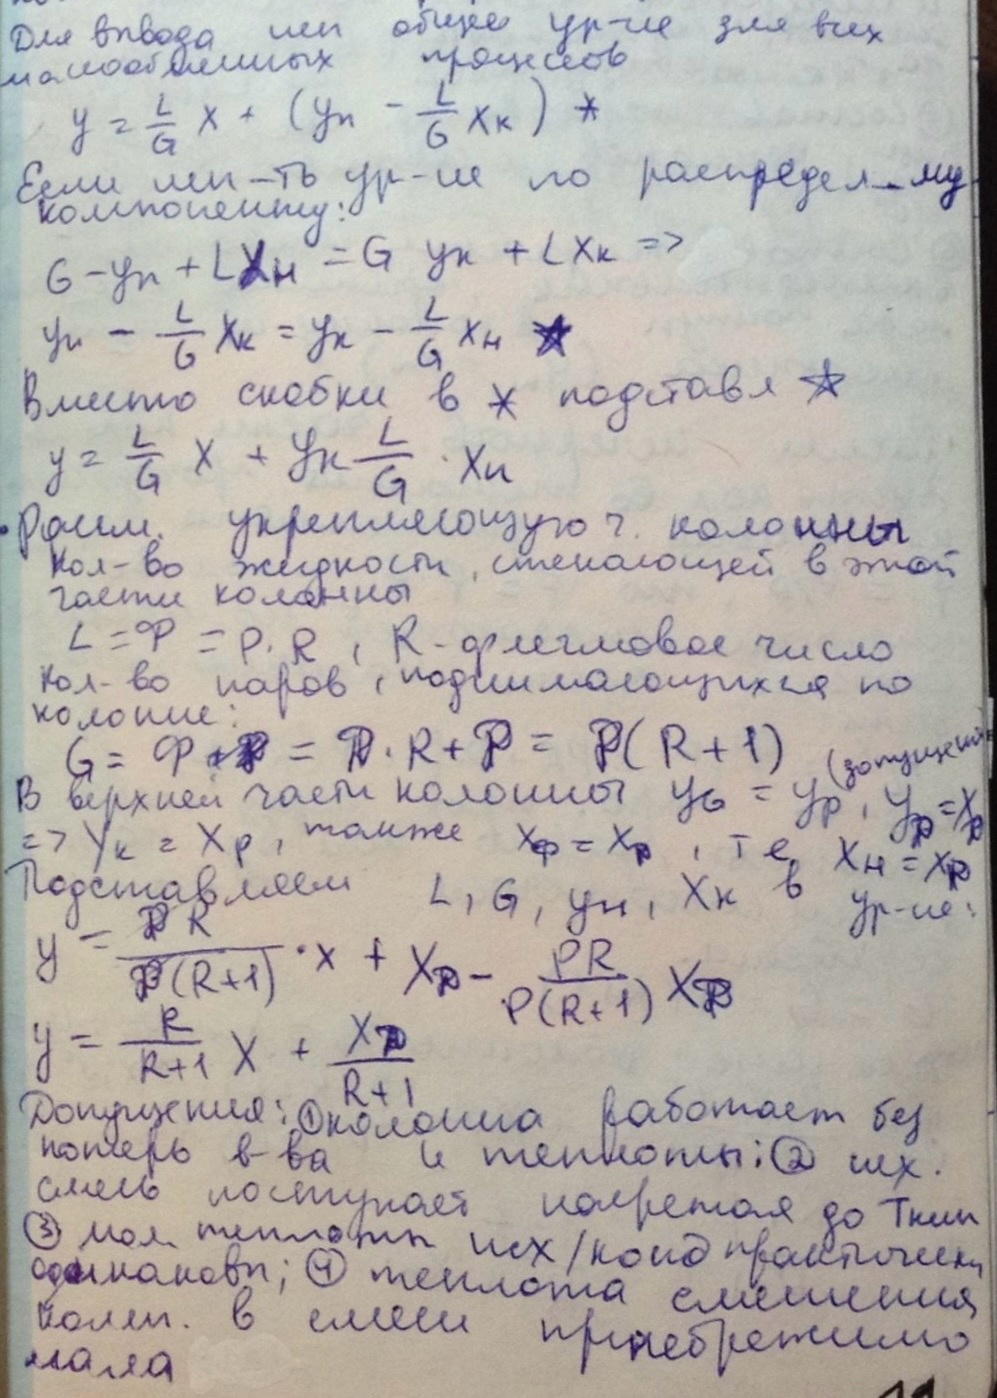 Для вывода исп общее ур-ие для всех
массообменных процессов
y = L/G x + (yн - L/G xк) *
Если исп-ть ур-ие по распредел-му
компоненту:
G-yн + Lxн = G yк + Lxк =>
yн - L/G xк = yк - L/G xн ☆
Вместо скобки в * подставл ☆
y = L/G x + yк L/G · xн
• Рассм. укрепляющую ч. колонны
Кол-во жидкости, стекающей в этой
части колонны
L = Ф = P·R, R-флегмовое число
Кол-во паров, поднимающихся по
колонне:
G = Ф + P = P·R + P = P(R+1)
В верхней части колонны yб = yp, yp = xp (допущений)
=> yк = xp, также xф = xp, т.е. xн = xp
Подставляем L, G, yн, xк в ур-ие:
y = PR/P(R+1) · x + xp - PR/P(R+1) xp
y = R/R+1 x + xp/R+1
Допущения: ① колонна работает без
потерь в-ва и теплоты; ② исх.
смесь поступает нагретая до Ткип
③ мол. теплоты исх/конд практически
одинаковы; ④ теплота смешения
комп. в смеси пренебрежимо
мала